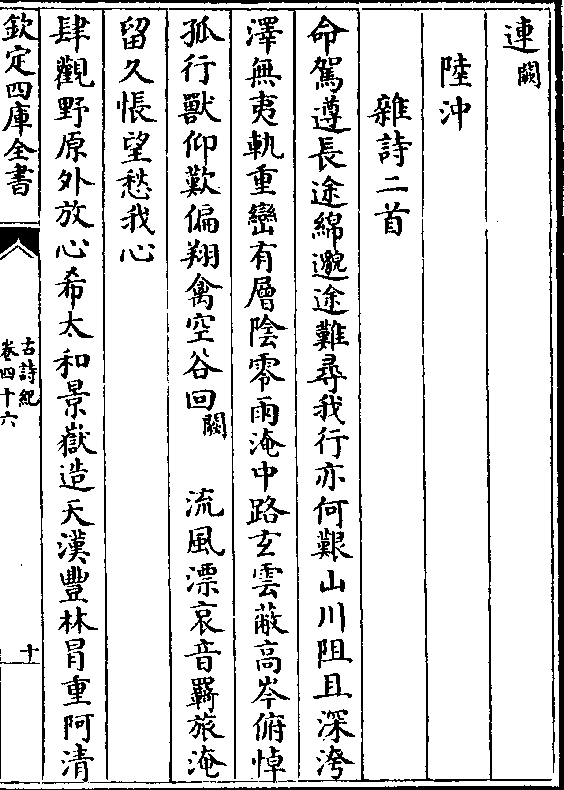 連闕
陸沖
雜詩二首
命駕遵長途綿邈途難尋我行亦何艱山川阻且深洿
澤無夷軌重巒有層陰零雨淹中路玄雲蔽高岑俯悼
孤行獸仰歎偏翔禽空谷回闕 流風漂哀音羇旅淹
留久悵望愁我心
肆觀野原外放心希太和景嶽造天漢豐林冒重阿清
欽定四庫全書
古詩紀
卷四十六
十